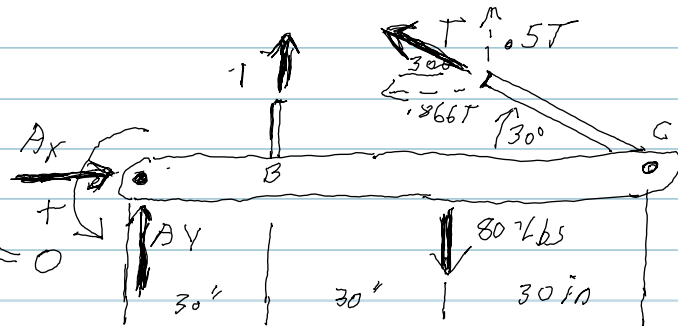 T .5T
T 30°
.866T
30° C
Ax B
+ AY 80 Lbs
= 0
30" 30" 30 in